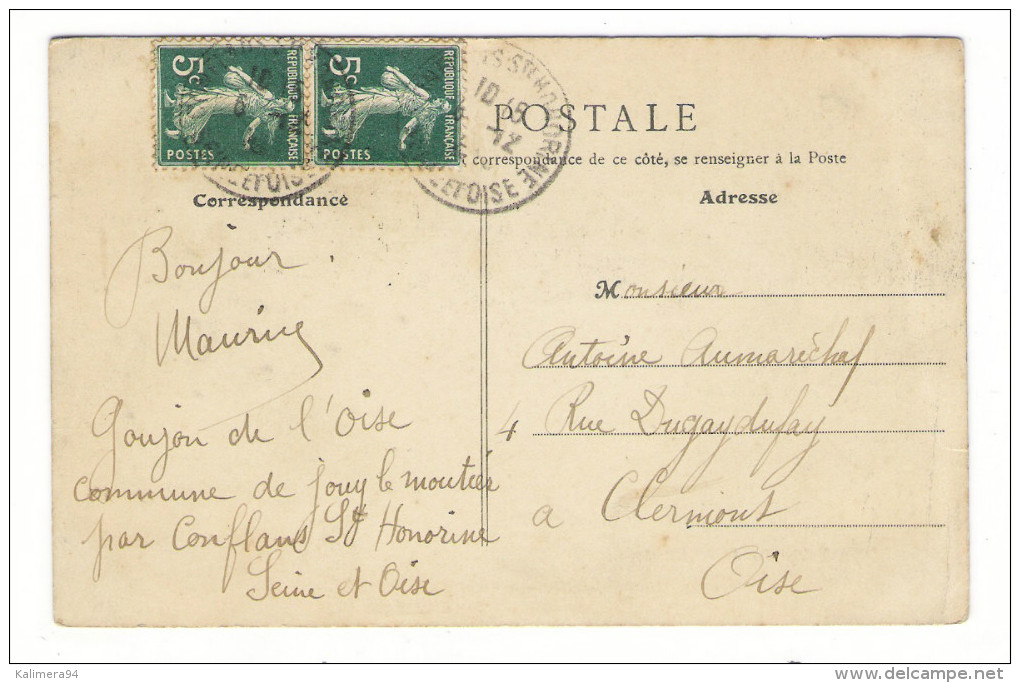 5c
REPUBLIQUE FRANÇAISE
POSTES
5c
REPUBLIQUE FRANÇAISE
POSTES
ET OISE
10
12
ET OISE
POSTALE
correspondance de ce côté, se renseigner à la Poste
Correspondance
Bonjour.
Maurice
Goujon de l'Oise
commune de jouy le moutier
par Conflans St Honorine
Seine et Oise
Adresse
Monsieur
Antoine Aumaréchal
4 Rue Dugaydufay
a Clermont
Oise
Kalimera94
www.delcampe.net